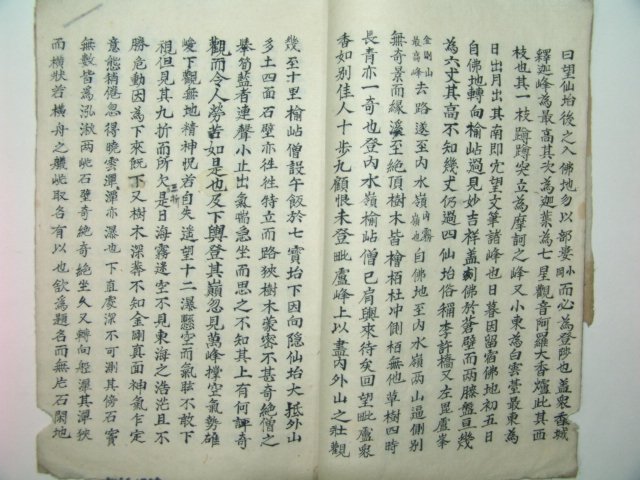 曰望仙坮後之入佛地勿以部婁小而心為登陟也盖衆香城
釋迦峰為最高其次為迦葉為七星觀音阿羅大香爐此其西
枝也其一枝蹲蹲突立為摩訶之峰又小東為白雲䑓最東為
日出月出其南即穴望文筆諸峰也日暮因留宿佛地初五日
自佛地轉向榆岾過見妙吉祥盖刻佛於蒼壁而兩膝盤亘幾
為六丈其高不知幾丈仍過四仙坮俗稱李許橋又左毘盧峯
金剛山最高峰去路遂至內水嶺內霧嶺也自佛地至內水嶺兩山逼側別
無奇景而緣溪至絶頂樹木皆檜栢杜冲側栢無他草樹四時
長青亦一奇也登內水嶺榆岾僧已肩輿來待矣回望毗盧衆
香如別佳人十步九顧恨未登毗盧峰上以盡內外山之壯觀
幾至十里榆岾僧設午飯於七寶坮下因向隱仙坮大抵外山
多土四面石壁亦徃徃特立而路狹樹木蒙密不甚奇絶僧之
舉筍藍者連聲小止出氣喘急坐而思之不知其上有何譚奇
觀而令人勞苦如是也及下輿登其巔忽見萬峰摚空氣勢雄
峻下觀無地精神怳若自失遥望十二瀑懸空而氣眩不敢下
視但見其九折而所欠三折是日海霧迷空不見東海之浩茫且不
勝危動因為下來旣下又樹木深莽不知金剛真面神氣乍定
意態稍倦忽得曉雲潭潭亦瀑也下直處深不可測其傍石實
無數皆為泓漵兩㟨石壁奇絶奇絶坐久又轉向船潭其潭狹
而橫狀若橫舟之艤㟨取名有以也飲為題名而無片石閑地